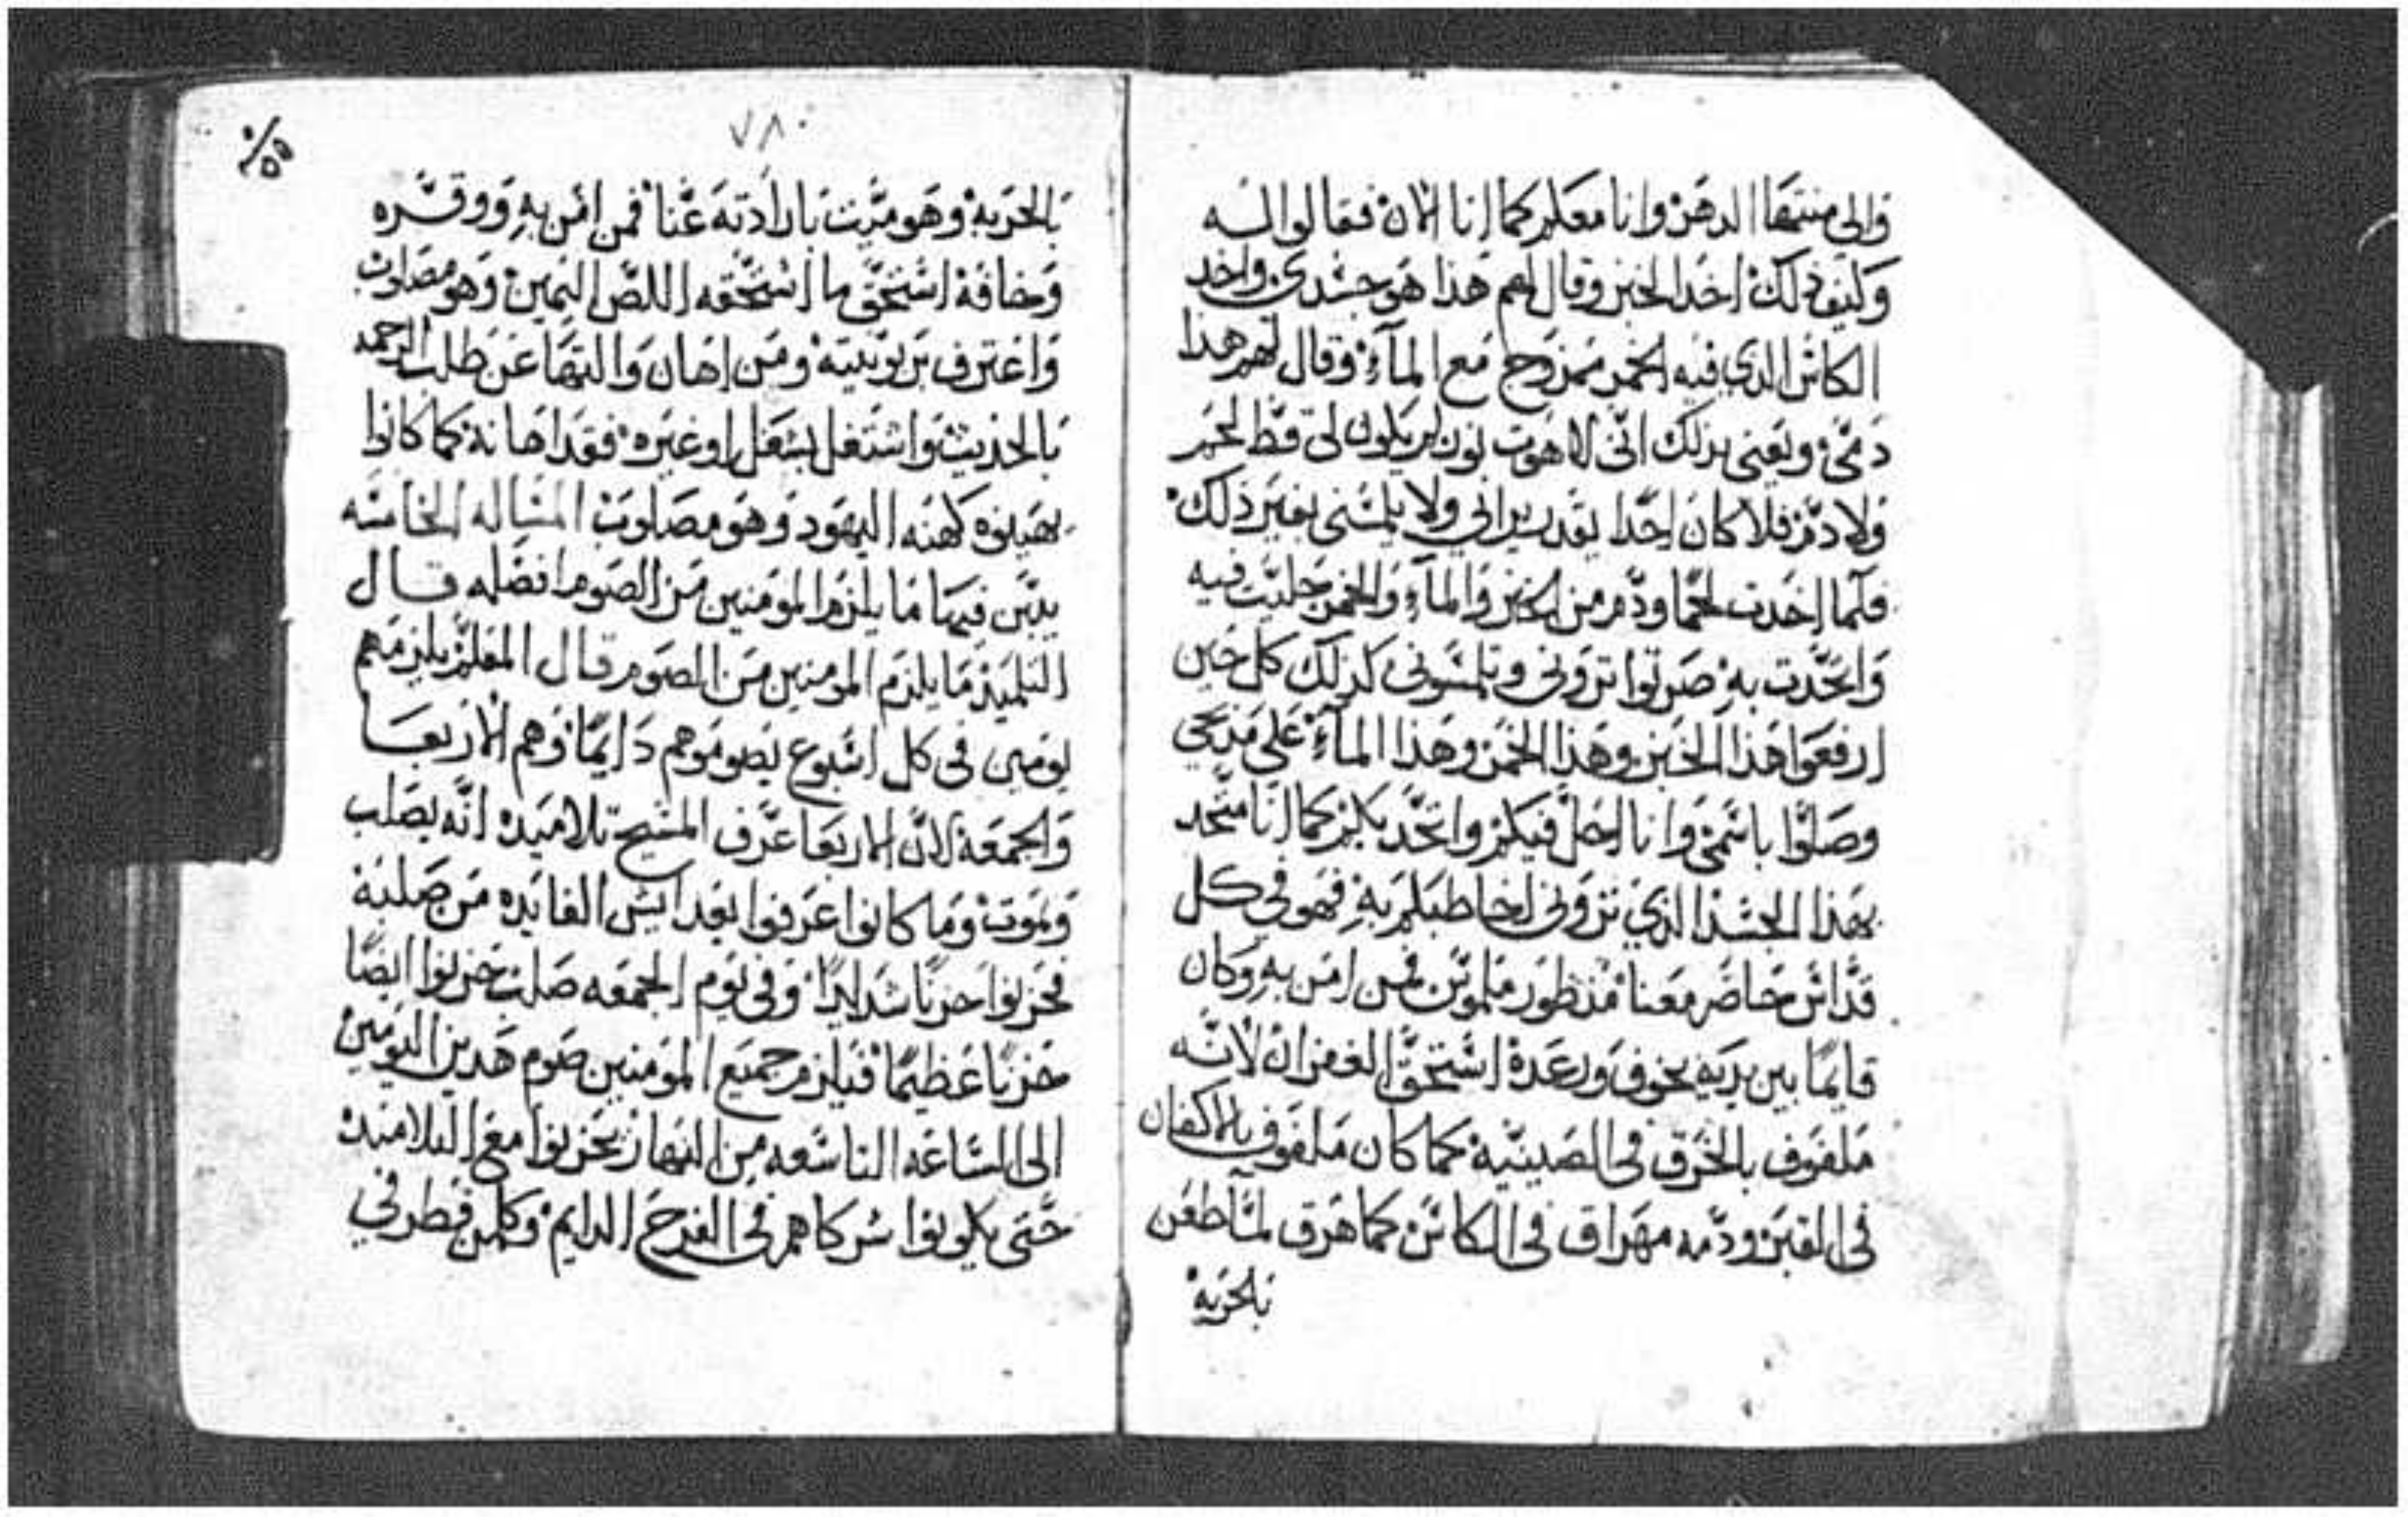 والي منتها الدهر وانا معكم كما انا الان فقالوا له
وكيف ذلك اخد الخبز وقال لهم هذا هو جسدي واخد
الكاس الذي فيه الخمر ممزوج مع المآء وقال لهم هذا
دمي ويعني بذلك اني لاهوت نور لم يكون لي قط لحم
ولا دم فلا كان احدا يقدر يراني ولا يلمسني بغير ذلك
فلما اخدت لحما ودم من الخبز والمآء والخمر حليت فيه
واتحدت به صرتوا تروني وتلمسوني كذلك كل حين
ارفعوا هذا الخبز وهذا الخمر وهذا المآء على مدبحي
وصلوا باسمي وانا احل فيكم واتحد بكم كما انا متحد
بهذا الجسد الذي تروني اخاطبكم به فهو في كل
قداس حاضر معنا منظور ملموس فمن امن به وكان
قايما بين يديه بخوف ورعدة استحق الغفران لانه
ملفوف بالخرق في الصينية كما كان ملفوف بالاكفان
في القبر ودمه مهراق في الكاس كما هرق لما طعن
بالحربة
٧٨٠
بالحربة وهو ميت بارادته عنا فمن امن به ووقره
وخافه استحق ما استحقه اللص اليمين وهو مصلوب
واعترف بربوبيته ومن اهان والتها عن طلب الرحمه
بالحديث واشتغل بشغل اوغيره فقد اهانه كما كانوا
يهينوه كهنه اليهود وهو مصلوب المساله الخامسه
يبين فيها ما يلزم المومنين من الصوم افضله قال
التلميذ ما يلزم المومنين من الصوم قال المعلم يلزمهم
يومين في كل اسبوع يصوموهم دايما وهم الاربعا
والجمعة لان الاربعا عرف المسيح تلاميده انه يصلب
ويموت وما كانوا عرفوا بعد ايش الفايده من صلبه
فحزنوا حزنا شديدا وفي يوم الجمعه صلب حزنوا ايضا
حزنا عظيما فيلزم جميع المومنين صوم هدين اليومين
الى الساعه التاسعه من النهار يحزنوا مع التلاميد
حتى يكونوا شركاهم في الفرح الدايم وكلمن فطر في